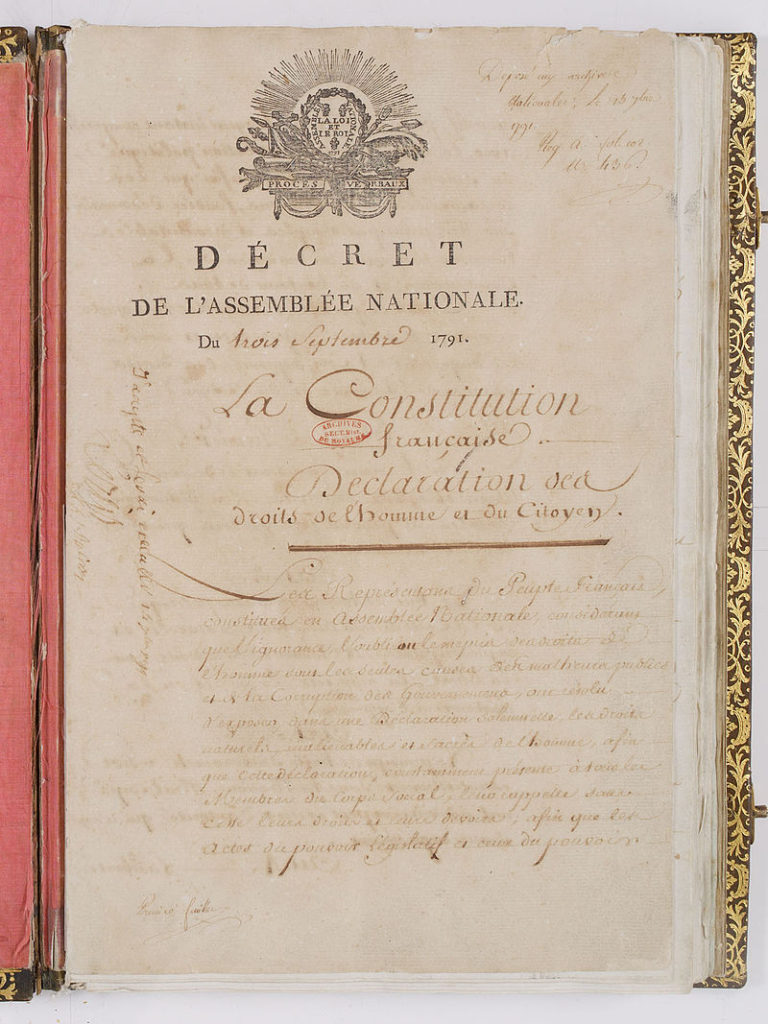 LA LOI
ET
LE ROI
PROCÈS VERBAUX
Déposé aux archives
Nationales, le
N.º 436.
DÉCRET
DE L'ASSEMBLÉE NATIONALE.
Du trois Septembre 1791.
La Constitution
ARCHIVES
SECT. HIST.
DU ROYAUME
française.
Déclaration des
droits de l'homme et du Citoyen.
Les Représentans du Peuple Français,
constitués en Assemblée Nationale, considérant
que l'ignorance, l'oubli ou le mépris des droits de
l'homme sont les seules causes des malheurs publics
et de la Corruption des Gouvernemens, ont résolu
d'exposer dans une Déclaration solennelle, les droits
naturels, inaliénables et sacrés de l'homme, afin
que cette déclaration, constamment présente à tous les
Membres du Corps Social, leur rappelle sans
cesse leurs droits et leurs devoirs; afin que les
Actes du pouvoir Législatif et ceux du pouvoir